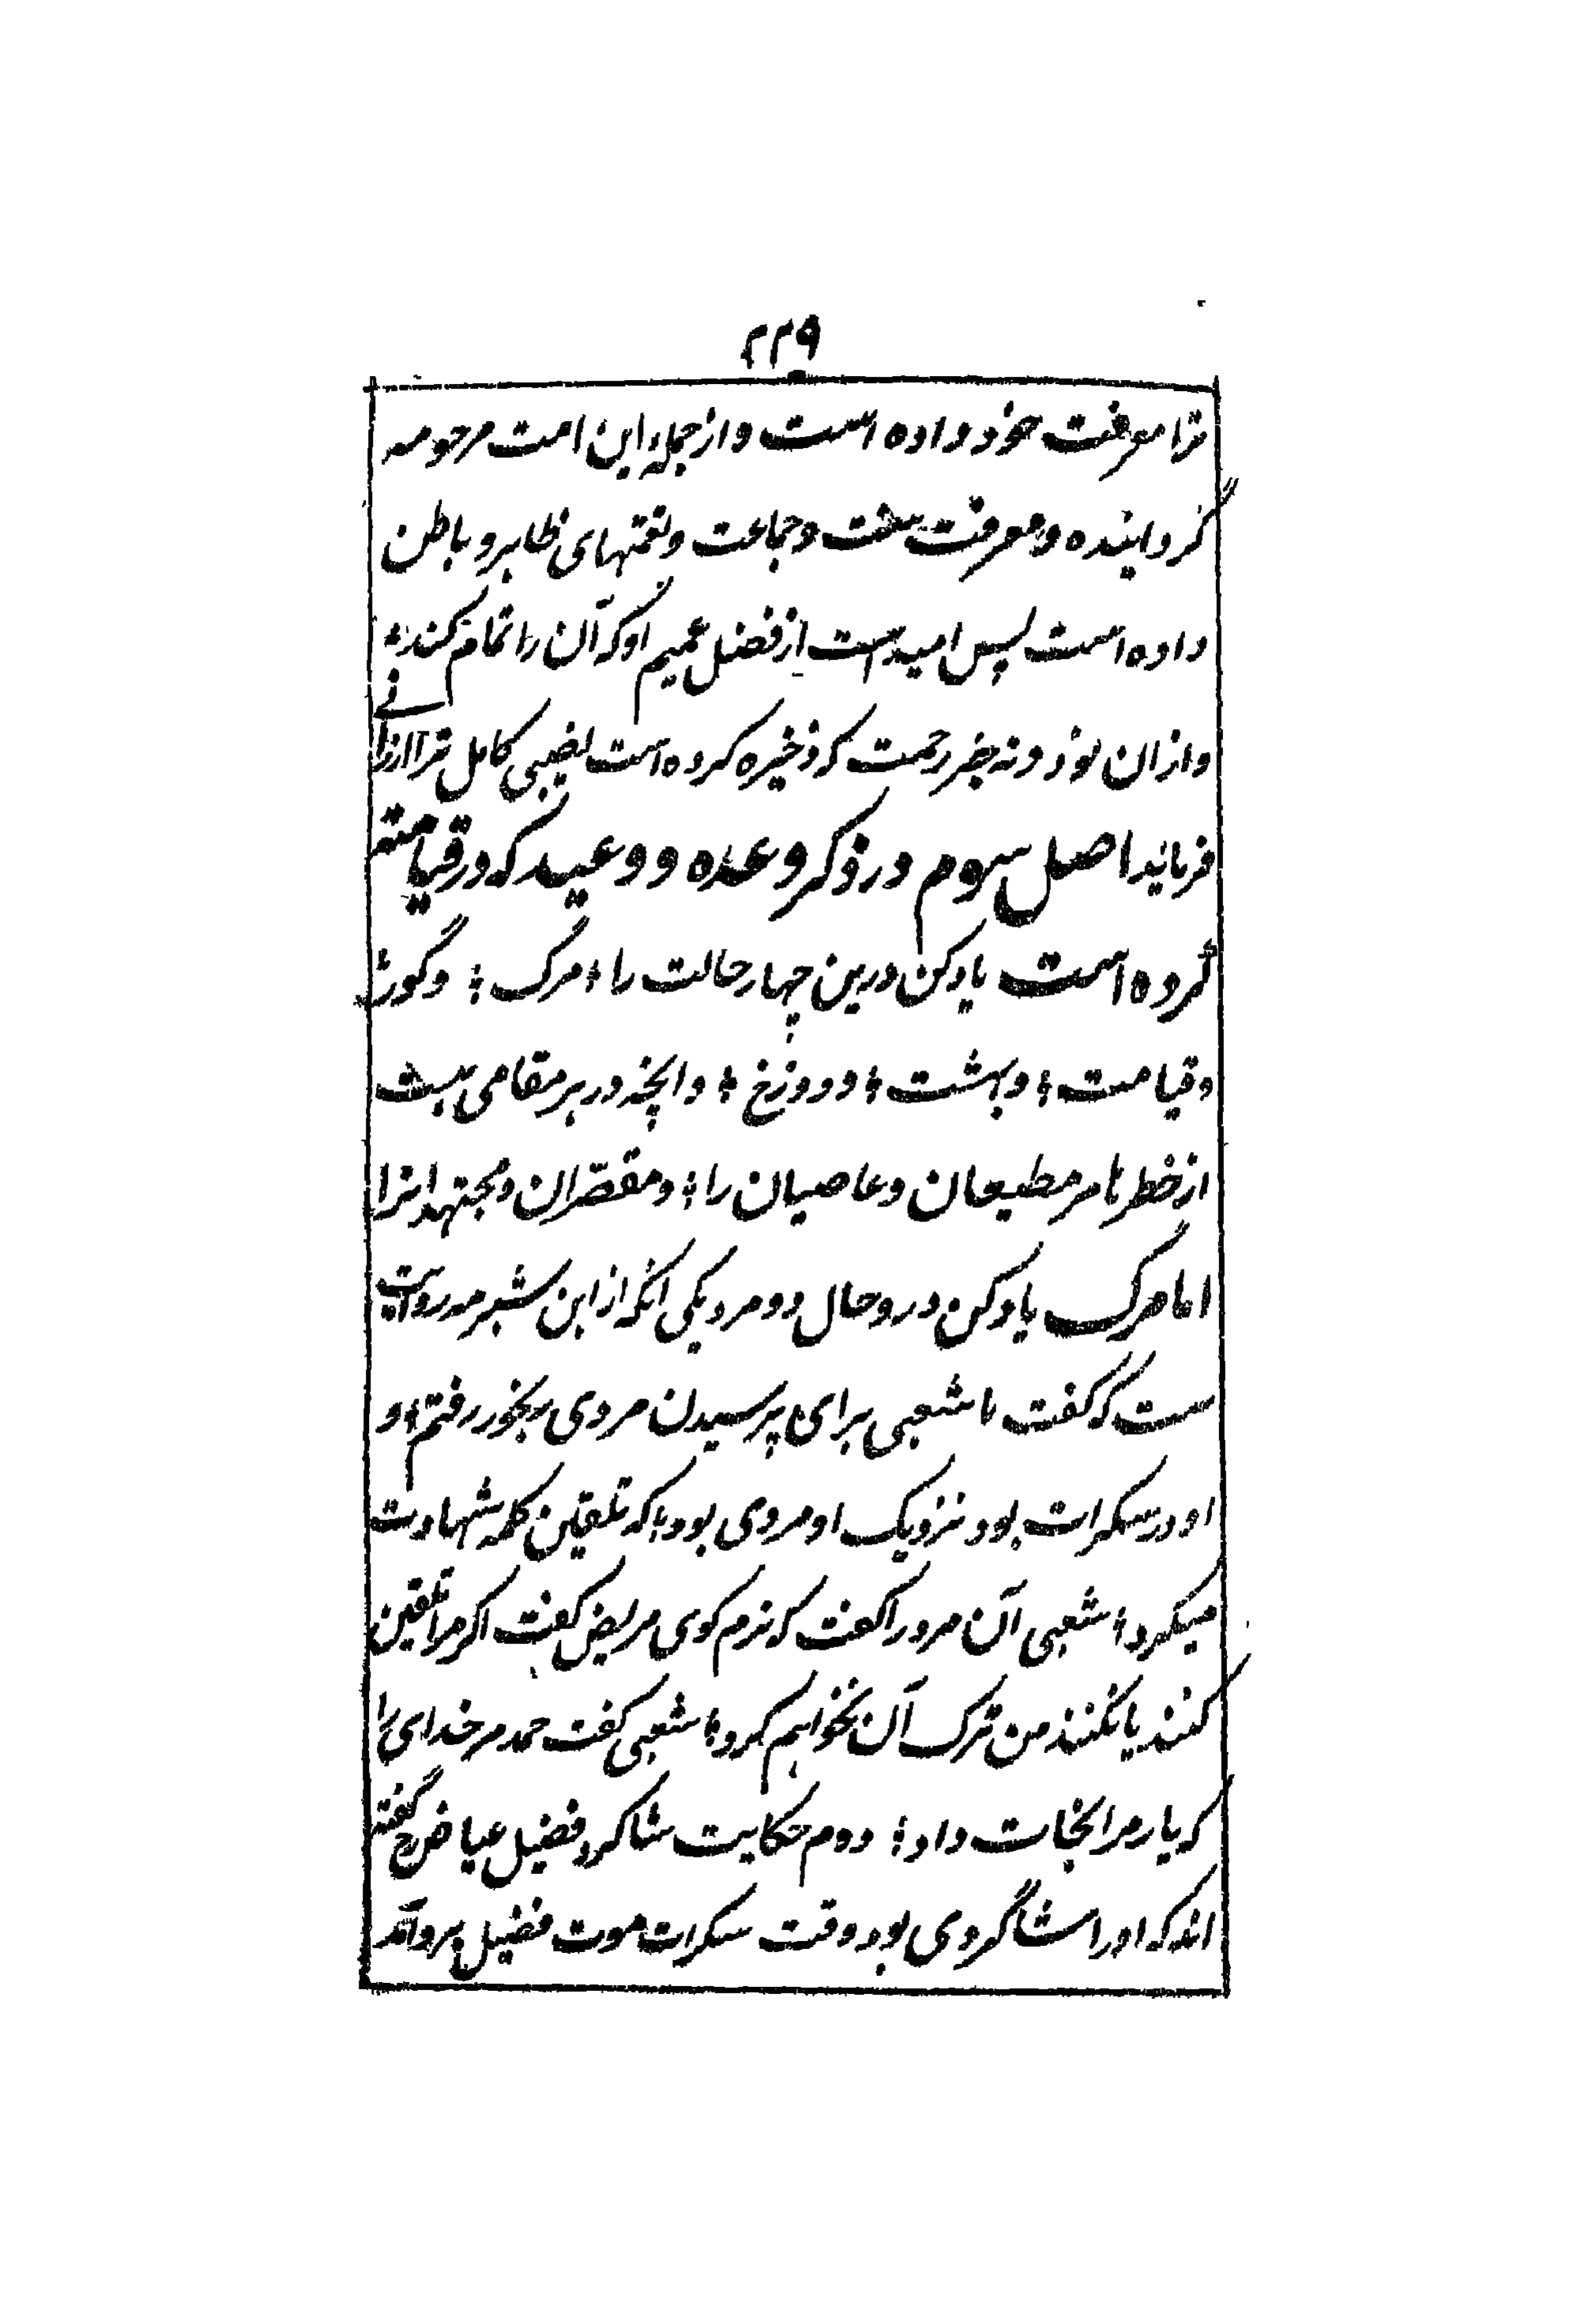 ۲۲۹
ترا معرفت خود داده است و از جملهٔ این امت مرحومه
گردانیده و معرفت سنت و جماعت و نعمتهای ظاهر و باطن
داده است پس امیدست از فضل عمیم او که آن را تمام کند؛
و ازان نود و نه جزء رحمت که ذخیره کرده است نصیبی کامل ترا ارزانے
فرماید اصل سوم در ذکر وعده و وعید که در قیامته
کرده است یاد کن درین چهار حالت را؛ مرگ؛ و گور؛
و قیامت؛ و بهشت؛ و دوزخ؛ و آنچه در هر مقامی هست
از خطرها مر مطیعان و عاصیان را؛ و مقصّران و مجتهدانرا
اما مرگ یاد کن درو حال دو مرد یکی آنکه از ابن شبرمه روایت
ست که گفت با شعبی برای پرسیدن مردی رنجور رفتم؛ و
او در سکرات بود نزدیک او مردی بود؛ که تلقین کلمه شهادت
میکرد؛ شعبی آن مرد را گفت که نرم کوی مریض گفت اگر مرا تلقین
کنند یا نکنند من ترک آن نخواهم کرد؛ شعبی گفت حمد مر خدای را
که یار مرا نجات داد؛ دوم حکایت شاگرد فضیل عیاض رح گفته
اند که او را شاگردی بود وقت سکرات موت فضیل برو آمد